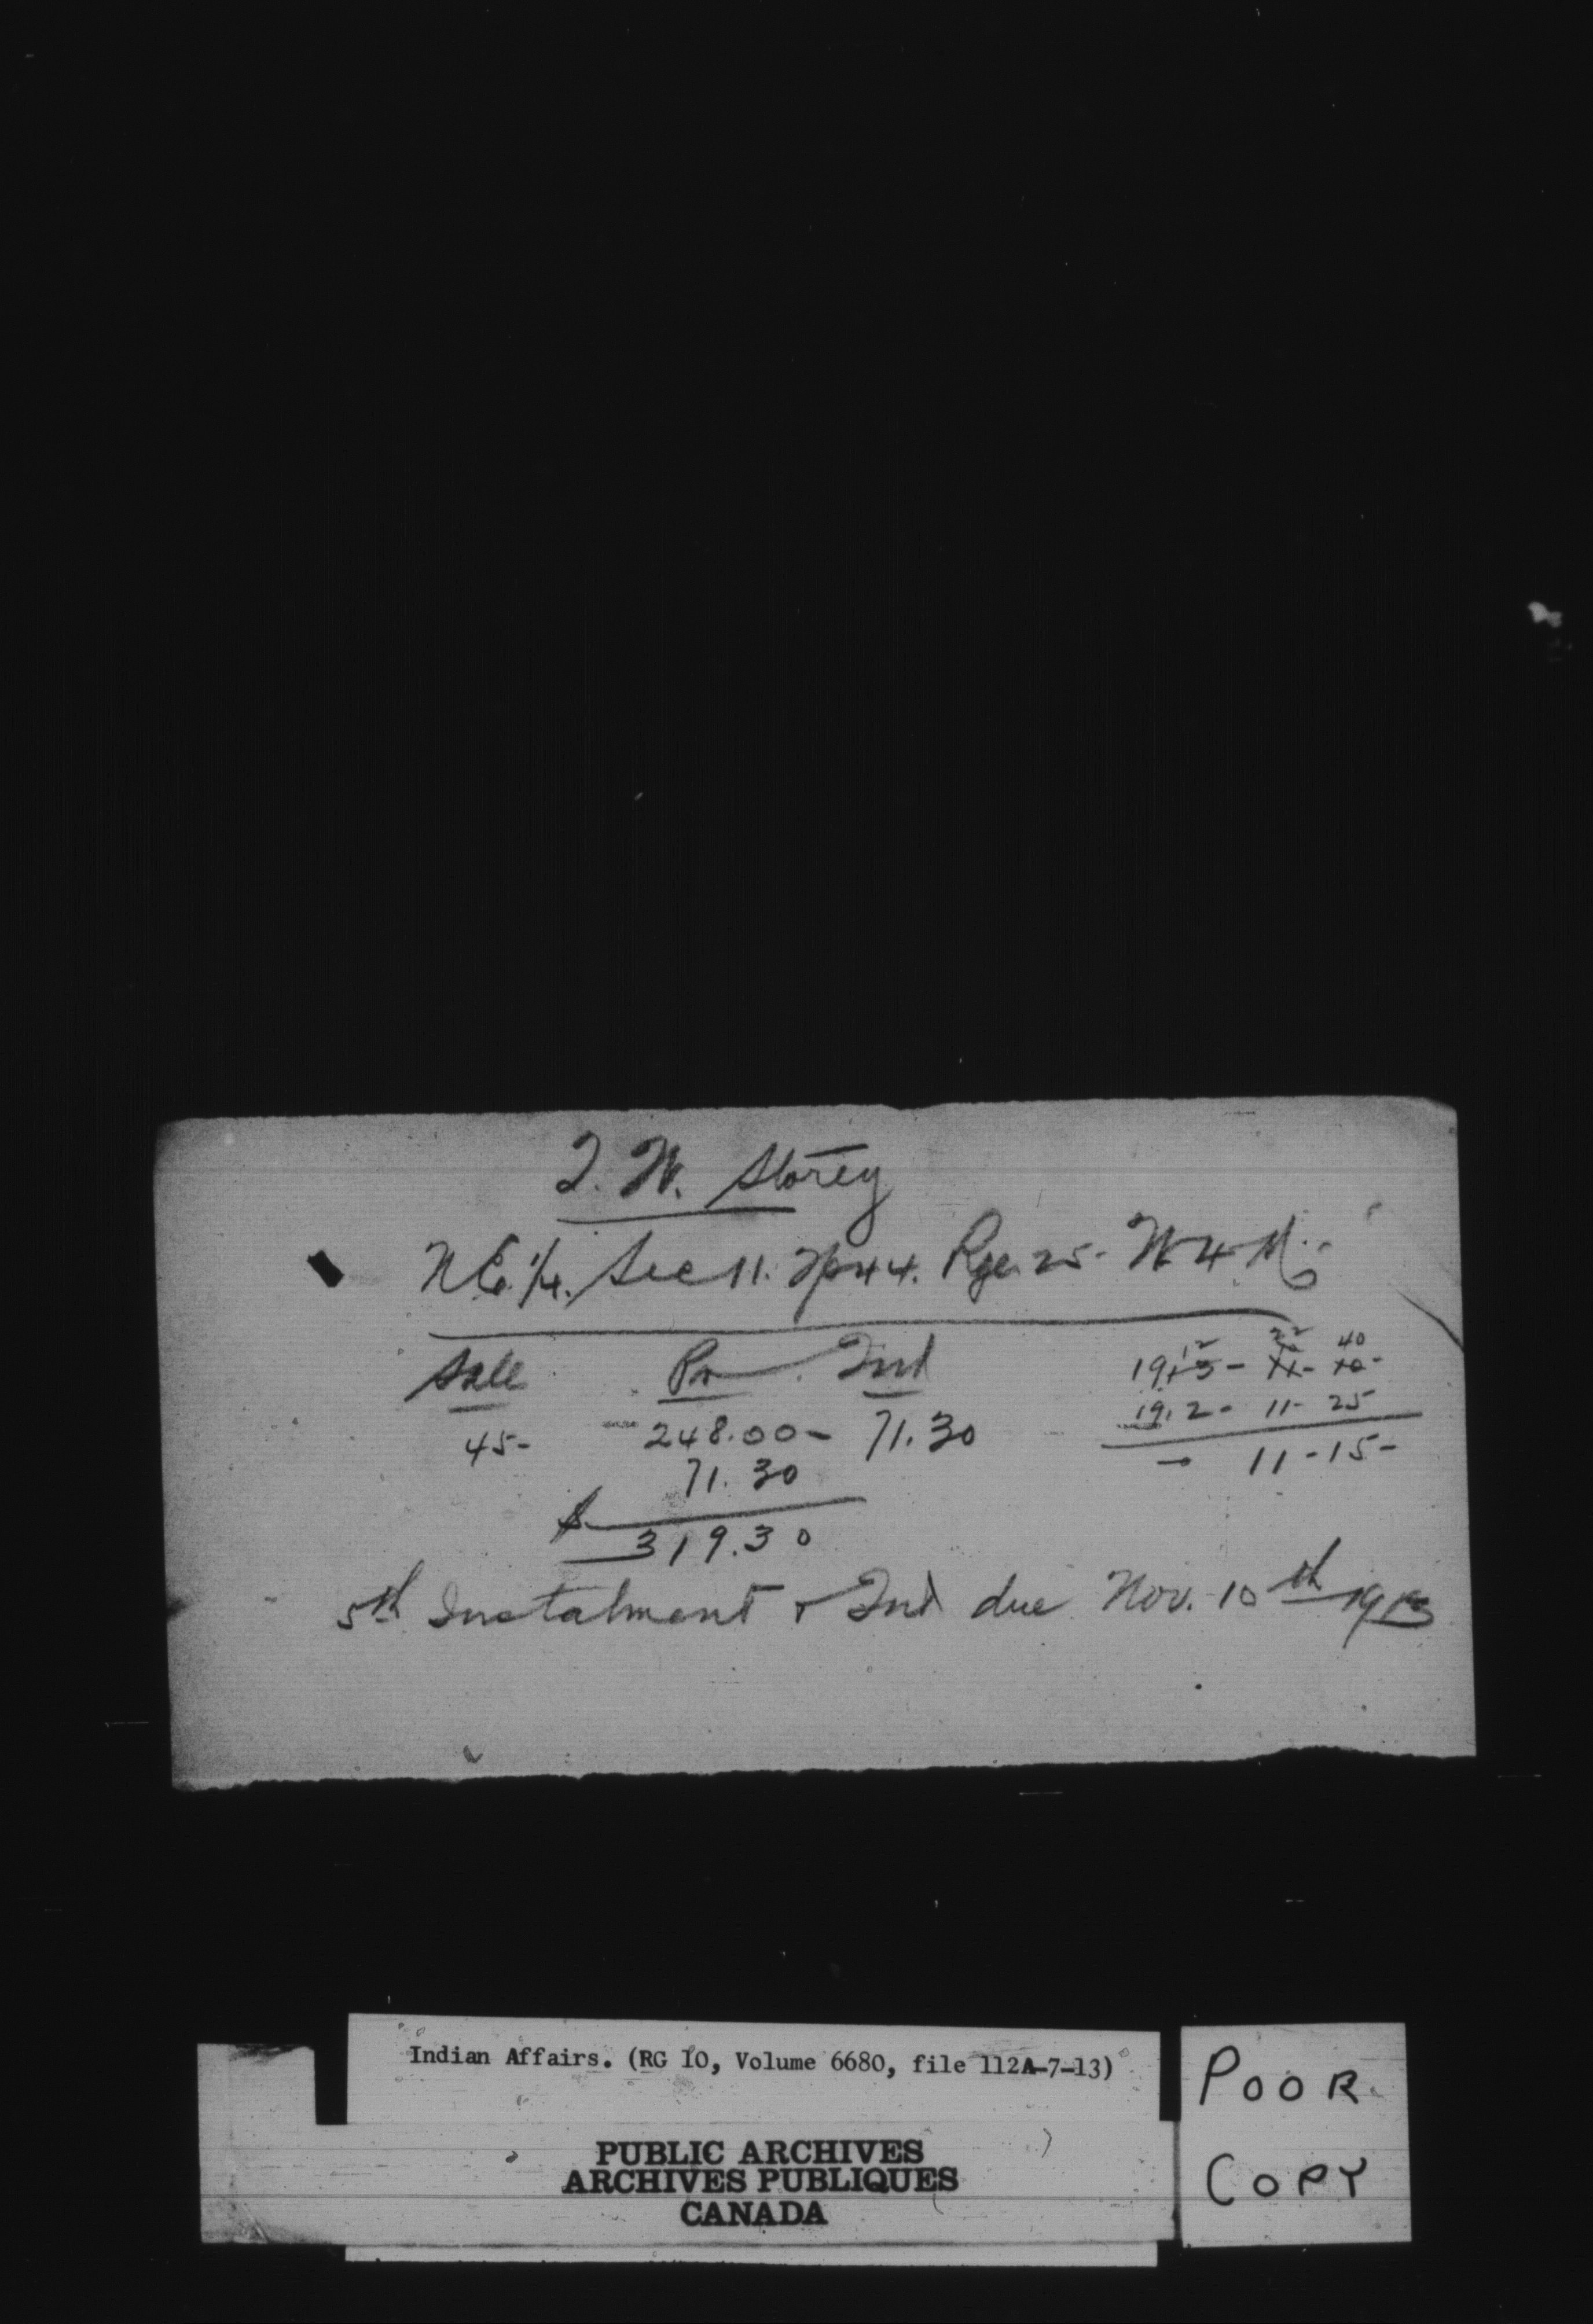 T. W. Storey
N.E. 1/4. Sec 11. Tp 44. Rge. 25- W 4 M.
Sale Pr Int
45- 248.00 - 71.30
71.30
$ 319.30
12 22 40
1913 - 11 - 10 -
1912 - 11 - 25
- 11 - 15 -
5th Instalment & Int due Nov. 10th 1913
Indian Affairs. (RG 10, Volume 6680, file 112A-7-13)
PUBLIC ARCHIVES
ARCHIVES PUBLIQUES
CANADA
POOR
COPY